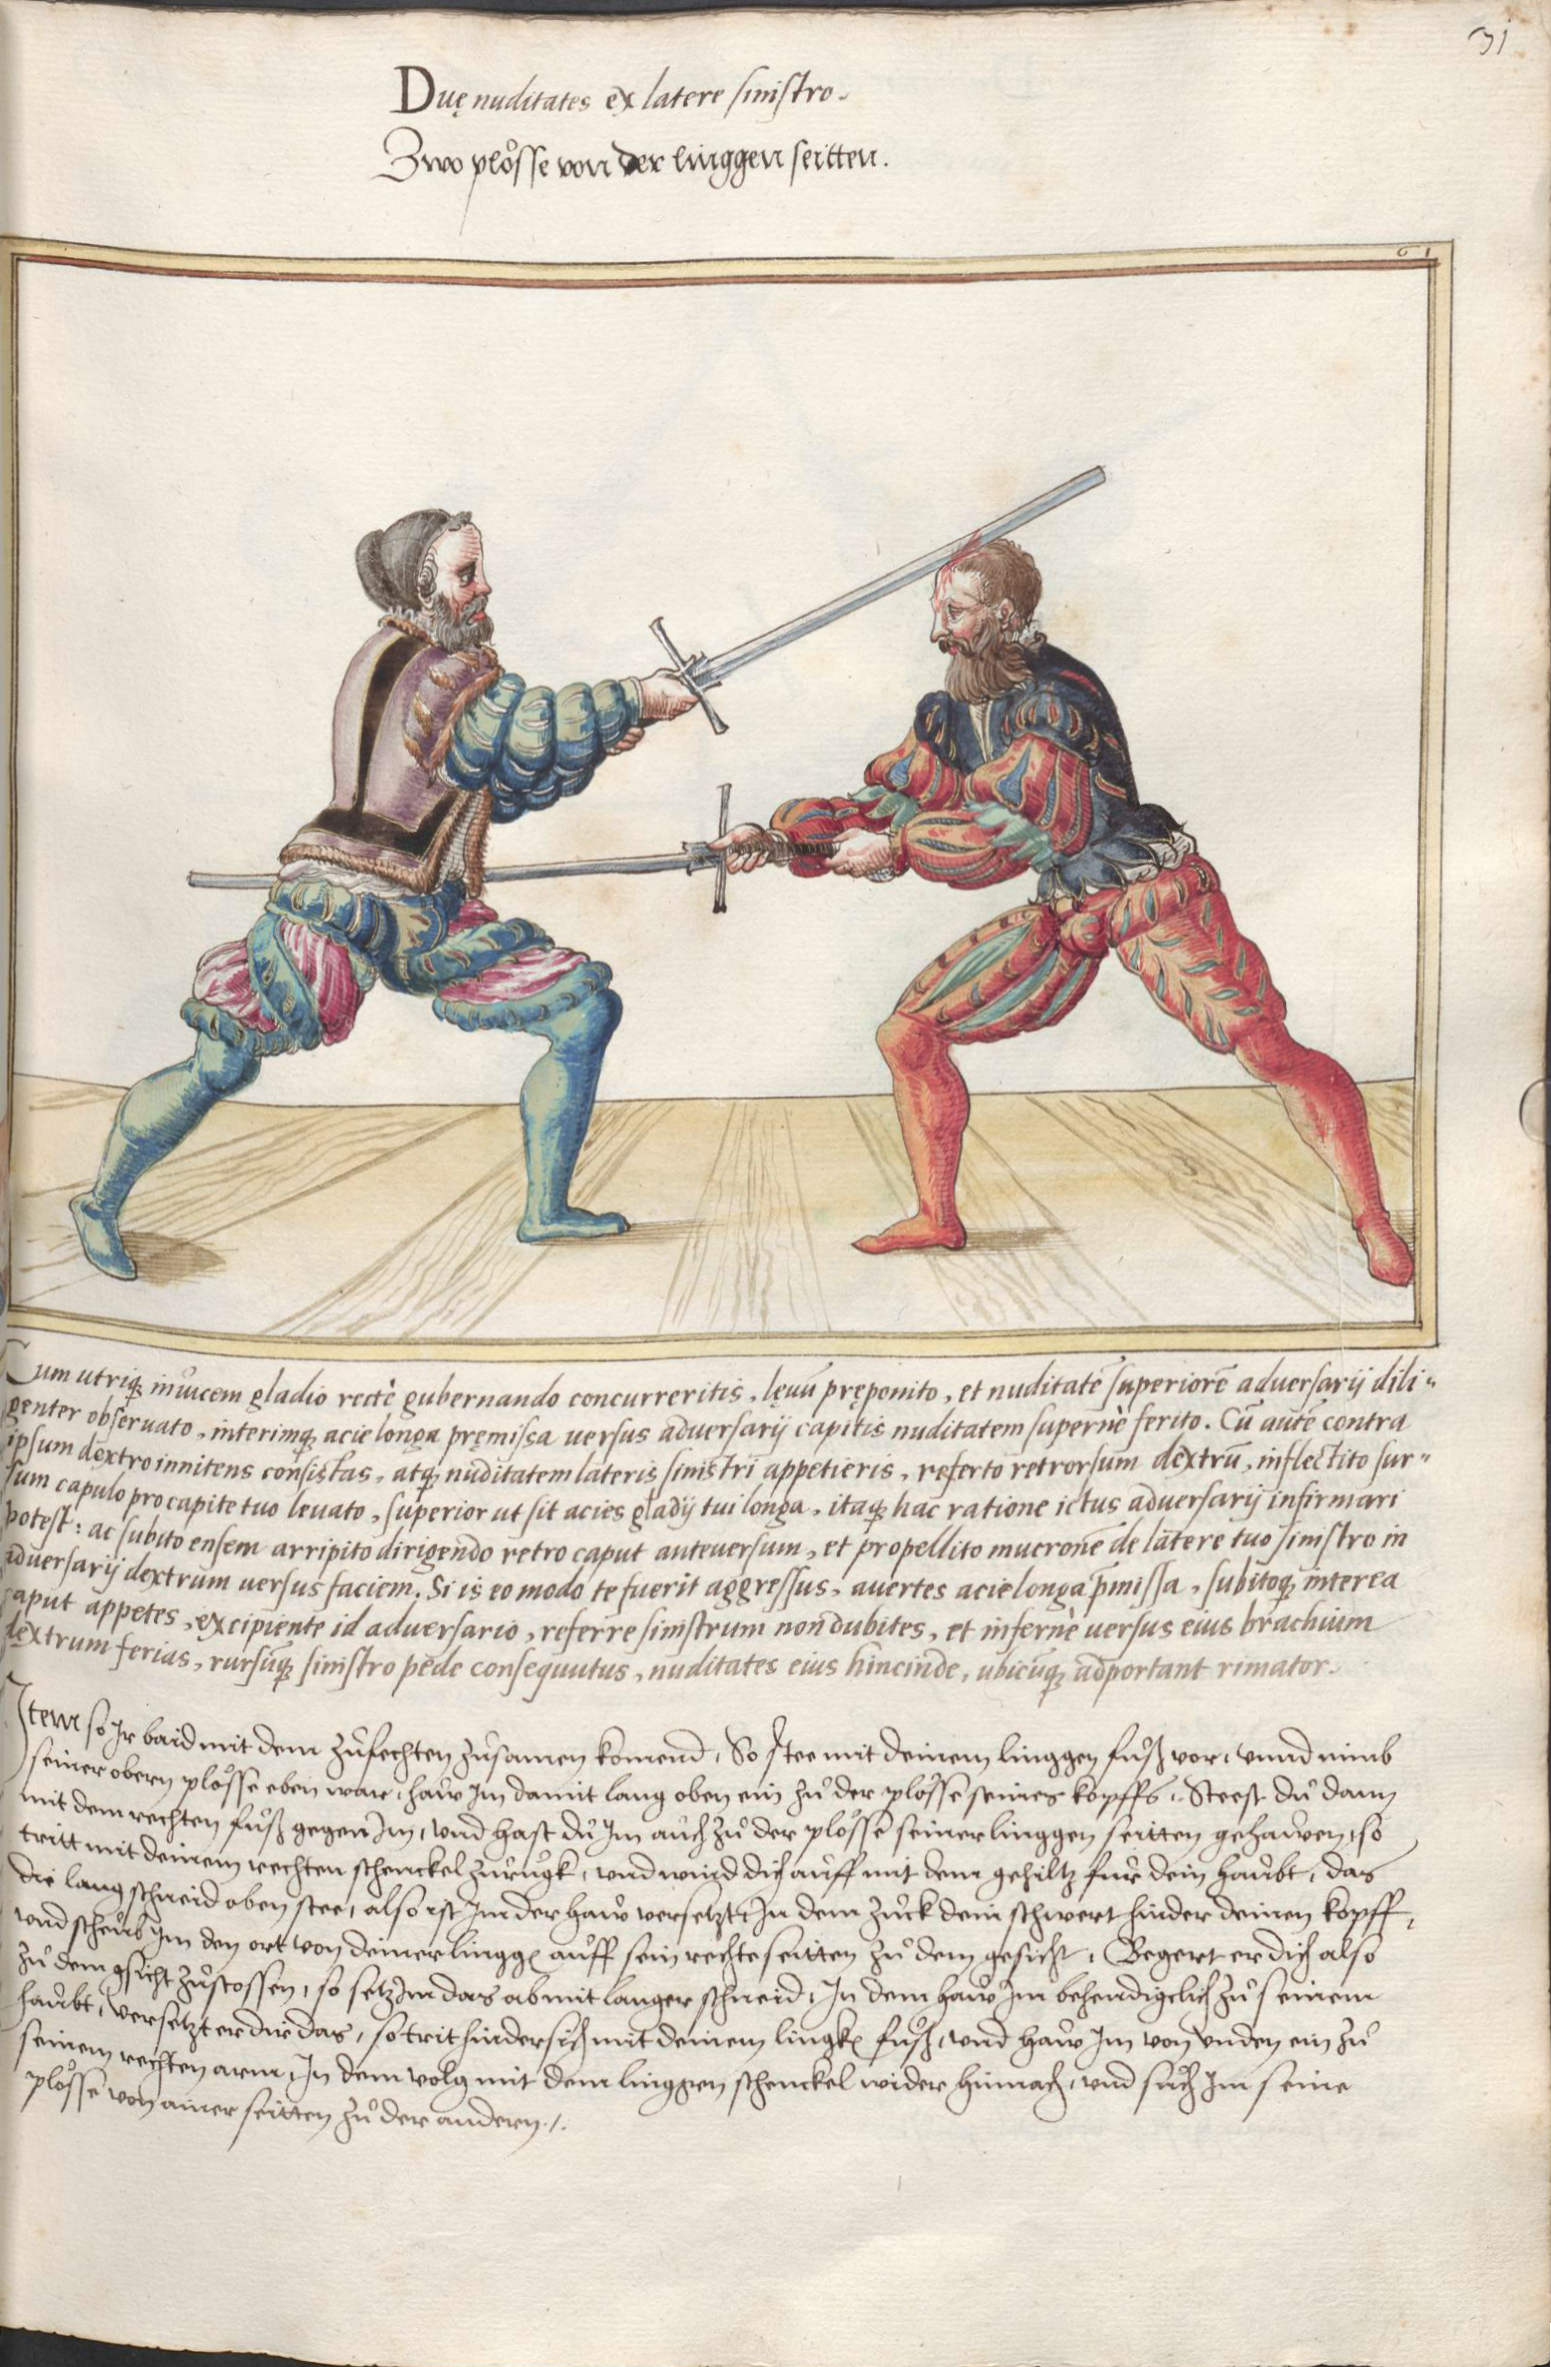 31
Duę nuditates ex latere sinistro.
Zwo plo͏̊sse von der linggen seitten.
61
Cum utriq₃ inuicem gladio rectè gubernando concurreritis, lęuū pręponito, et nuditatē superiorē aduersarij dili=
genter obseruato, interimq₃ acie longa pręmissa uersus aduersarij capitis nuditatem supernè ferito. Cū autē contra
ipsum dextro innitens consistas, atq₃ nuditatem lateris sinistri appetieris, referto retrorsum dextrū, inflectito sur=
sum capulo pro capite tuo leuato, superior ut sit acies gladij tui longa, itaq₃ hac ratione ictus aduersarij infirmari
potest: ac subito ensem arripito dirigendo retro caput anteuersum, et propellito mucronē de latere tuo sinistro in
aduersarij dextrum uersus faciem. Si is eo modo te fuerit aggressus, auertes acie longa p̄missa, subitoq₃ interea
caput appetes, excipiente id aduersario, referre sinistrum non dubites, et infernè uersus eius brachium
dextrum ferias, rursūq₃ sinistro pede consequutus, nuditates eius hincinde, ubicūq₃ adportant rimator.
Item so Ir baid mit dem zůfechten zůsamen komend, So stee mit deinem linggen fůß vor, vnnd nimb
seiner obern plo̊sse eben war, haw Im damit lang oben ein zů der plo̊sse seines kopffs, Steest dů dann
mit dem rechten fůß gegen Im, vnd hast dů Im aůch zů der plo̊sse seiner linggen seitten gehawen, so
tritt mit deinem rechten schenckel zůrůgk, vnd wind dich aůff mit dem gehiltz fůr dein haůbt, das
die lang schneid oben stee, also ist Im der haw versetzt, In dem zůck dein schwert hinder deinen kopff,
vnd scheůb Im den ort von deiner lingḡ aůff sein rechte seitten zů dem gesicht, Begert er dich also
zů dem gsicht zůstossen, so setz Im das ab mit langer schneid, In dem haw Im behendigclich zů seinem
haůbt, Versetzt er dir das, so trit hindersich mit deinem lingk̄ fůß, vnd haw Im von vnden ein zů
seinem rechten arm, In dem volg mit dem linggen schenckel wider hinnach, vnd sůch Im seine
plo̊sse von ainer seitten zů der andern.